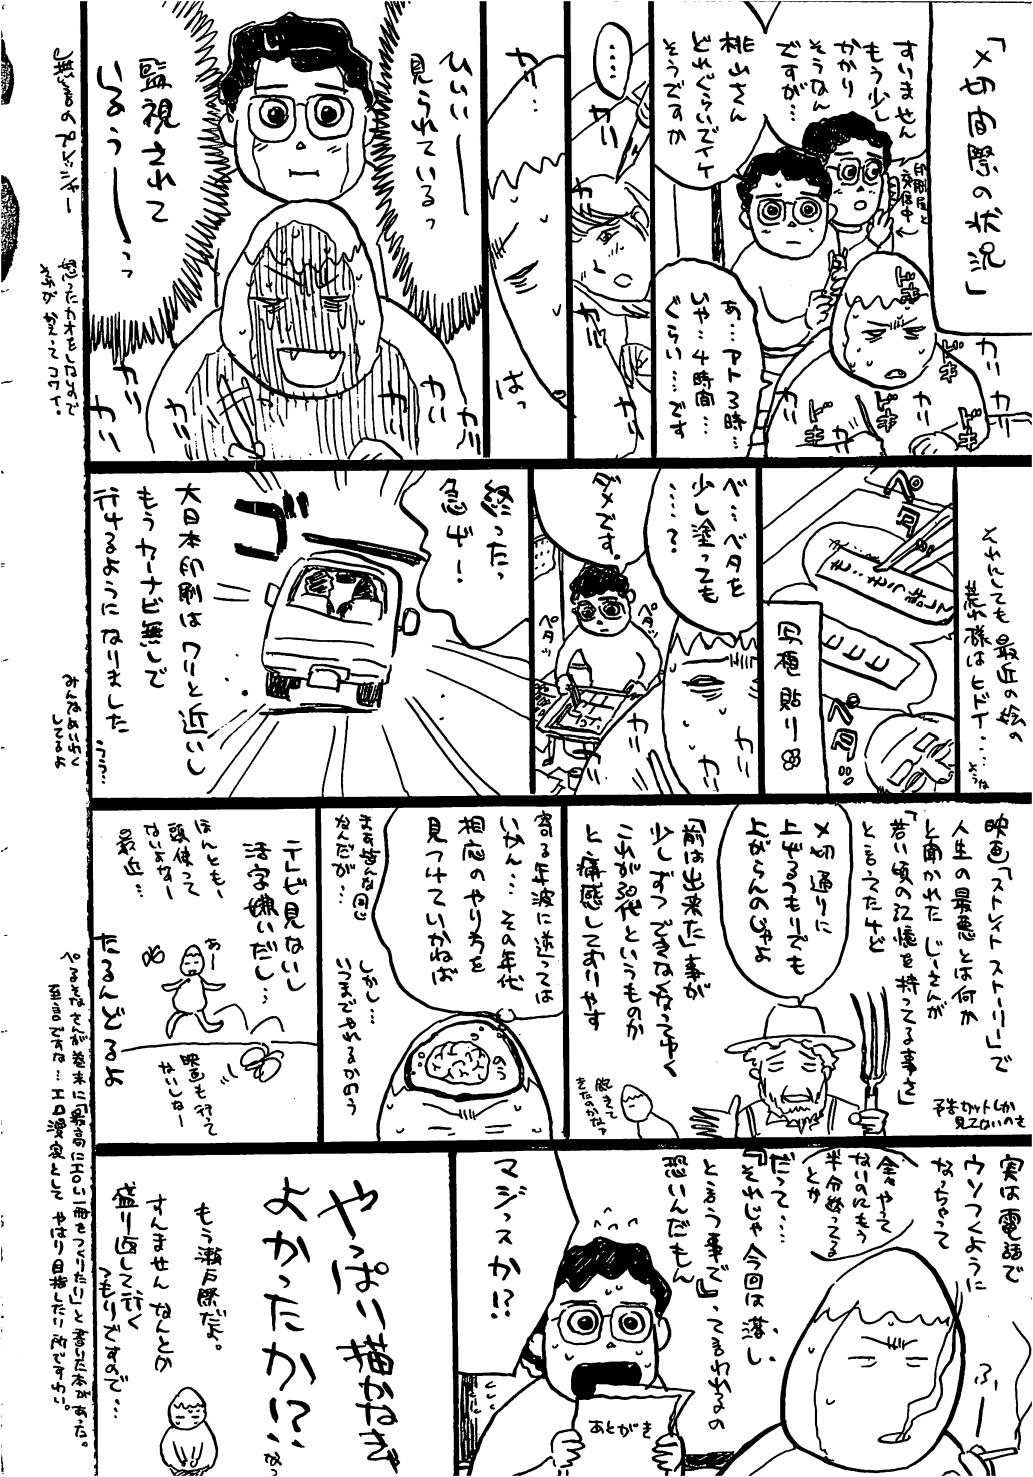 「〆切間際の状況」
すいません
もう少し
かかり
そうなん
ですが…
印刷屋と
交信中
桃山さん
どれぐらいでイケ
そうですか
あ…アト3時…
いや…4時間…
ぐらい……です
ドキ
ドキ
ドキ
ドキ
ドキ
カリ
カリ
カリ
カリ
カリ
‥‥
カリ
カリ
カリ
カリ…
はっ
ひいぃー
見られているっ
監視されて
いるぅーーっっ
カリ
カリ
カリ
カリ
無言のプレッシャー
怒ったカオをしないので
それがかえってコワイ。
それにしても最近の絵の
荒れ様はヒドイ…
ペタ…
写植貼り
ペタ…
ベ…ベタを
少し塗っても
……?
カリ
カリ
カリ
ダメです。
ペタッ
ペタッ
終ったっ
急げー!
ゴ
大日本印刷はワリと近いし
もうカーナビ無しで
行けるようになりました
うう…
みんなめいわく
してるよ
映画「ストレイトストーリー」で
人生の最悪とは何か
と聞かれたじーさんが
「若い頃の記憶を持ってる事さ」
と言ってたけど
予告カットしか
見てないのさ
〆切通りに
上げるつもりでも
上がらんのじゃよ
「前は出来た」事が
少しずつできなくなってゆく
これが30代というものか
と痛感しておりやす
飽きて
きたのかなァ
寄る年波に逆っては
いかん…その年代
相応のやり方を
見つけていかねば
のう
まあ皆んな同じ
なんだが…
しかし…
いつまでやれるかのう
テレビ見ないし
活字嫌いだし…
ほんともー
頭使って
ないよなー
最近…
あー
映画も行って
ないしなー
たるんどるよ
実は電話で
ウソつくように
なっちゃって
全々やって
ないのにもう
半分終ってる
とか
だって…
『それじゃ今回は落し
という事で』って言われるの
恐いんだもん
ふーー
マジっスか!?
あとがき
やっぱり描かなきゃ
よかったか!?
もう瀬戸際だよ。
すんません なんとか
盛り返して行く
つもりですので…
ぺるそなさんが巻末に「最高にエロい一冊をつくりたい」と書いた本があった。
至言ですな…エロ漫家として やはり目指したい所ですわい。